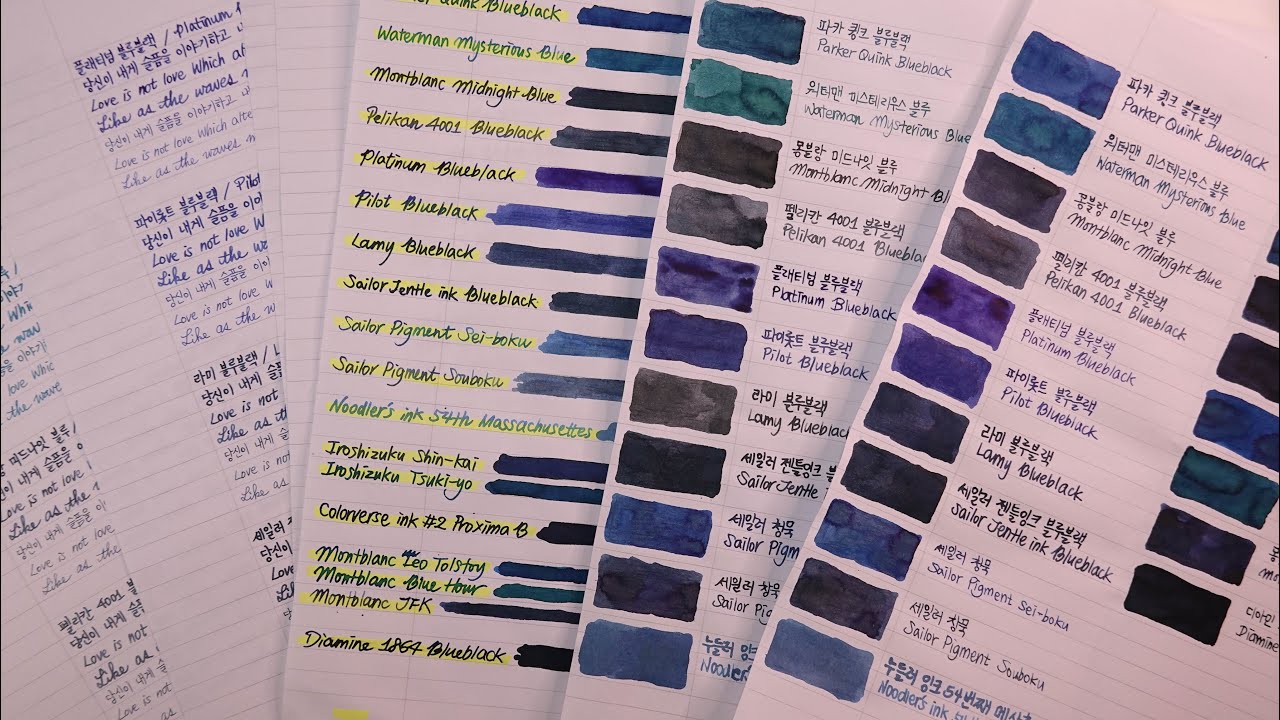 플래티넘 블루블랙 / Platinum
당신이 내게 슬픔을 이야기하고
Love is not love Which alte
Like as the waves
당신이 내게 슬픔을 이야기하고
Love is not love Which alte
Like as the waves m
파이롯트 블루블랙 / Pilot
당신이 내게 슬픔을 이야
Love is not love W
Like as the we
당신이 내게 슬픔을 이
Love is not love W
Like as the w
라미 블루블랙 / L
당신이 내게 슬픔
Love is not
Like as t
당신이 내게 슬
Love is not
Like as
세일러 젠
당신이
Love
Like
love Whic
the wave
미드나잇 블루 /
내게 슬픔을
is not love
Like as the
당신이 내게 슬픔을
Love is not love
Like as the
펠리칸 4001
당신이 내게 슬
Love is not
Like as
당신이 내게 슬
Love is not
Like as
Quink Blueblack
Waterman Mysterious Blue
Montblanc Midnight Blue
Pelikan 4001 Blueblack
Platinum Blueblack
Pilot Blueblack
Lamy Blueblack
Sailor Jentle ink Blueblack
Sailor Pigment Sei-boku
Sailor Pigment Souboku
Noodler's ink 54th Massachusettes
Iroshizuku Shin-kai
Iroshizuku Tsuki-yo
Colorverse ink #2 Proxima B
Montblanc Leo Tolstoy
Montblanc Blue Hour
Montblanc JFK
Diamine 1864 Blueblack
파카 큉크 블루블랙
Parker Quink Blueblack
워터맨 미스테리우스 블루
Waterman Mysterious Blue
몽블랑 미드나잇 블루
Montblanc Midnight Bl
펠리칸 4001 블루블랙
Pelikan 4001 Blueblac
플래티넘 블루블랙
Platinum Blueblack
파이롯트 블루블랙
Pilot Blueblack
라미 블루블랙
Lamy Blueblack
세일러 젠틀잉크 블
Sailor Jentle
세일러 청묵
Sailor Pigm
세일러 창묵
Sailor Pig
누들러 잉크
Noodler
파카 큉크 블루블랙
Parker Quink Blueblack
워터맨 미스테리우스 블루
Waterman Mysterious Blue
몽블랑 미드나잇 블루
Montblanc Midnight Blue
펠리칸 4001 블루블랙
Pelikan 4001 Blueblack
플래티넘 블루블랙
Platinum Blueblack
파이롯트 블루블랙
Pilot Blueblack
라미 블루블랙
Lamy Blueblack
세일러 젠틀잉크 블루블랙
Sailor Jentle ink Blueblack
세일러 청묵
Sailor Pigment Sei-boku
세일러 창묵
Sailor Pigment Souboku
누들러 잉크 54번째 메사추
Noodler's ink
디아민
Diamine